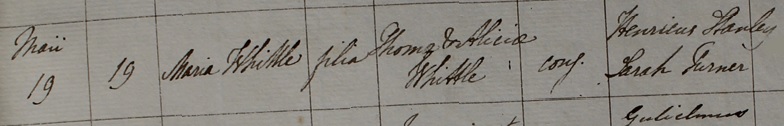 Maii
19
19
Maria Whittle
filia
Thomæ & Aliciæ
Whittle
conj.
Henricus Stanley
Sarah Turner
Gulielmus